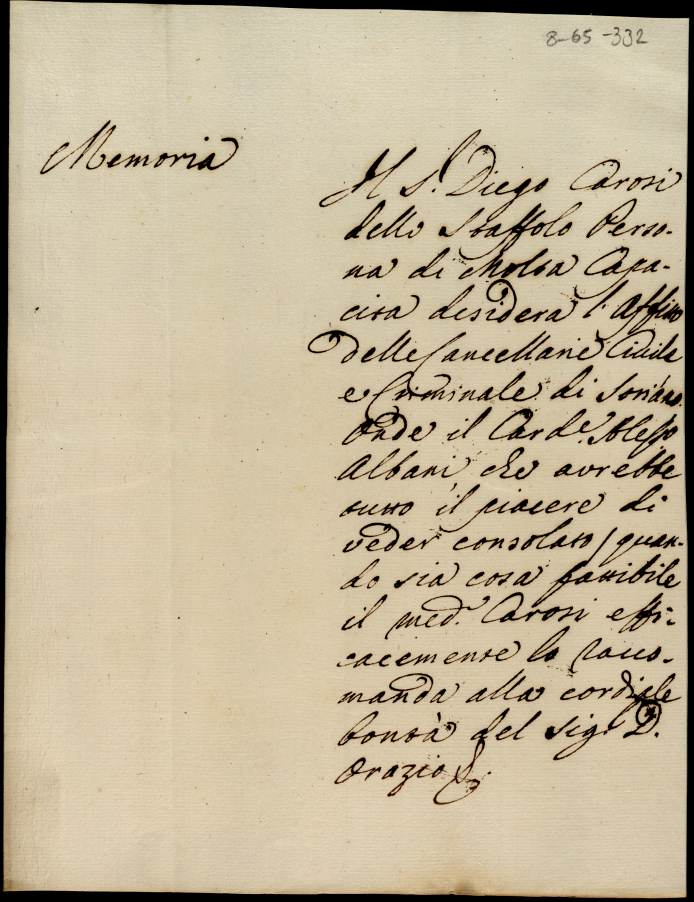 8-65-332
Memoria
Il S.r Diego Carosi
dello Staffolo Perso-
na di Molta Capa-
cita desidera l'Affitto
delle Cancellarie Civile
e Criminale di Soriano.
Onde il Card.e Aless.o
Albani, che avrebbe
tutto il piacere di
veder consolato / quan-
do sia cosa fattibile
il med.o Carosi effi-
cacemente lo racco-
manda alla cordiale
bontà del Sig.r D.
Orazio &.